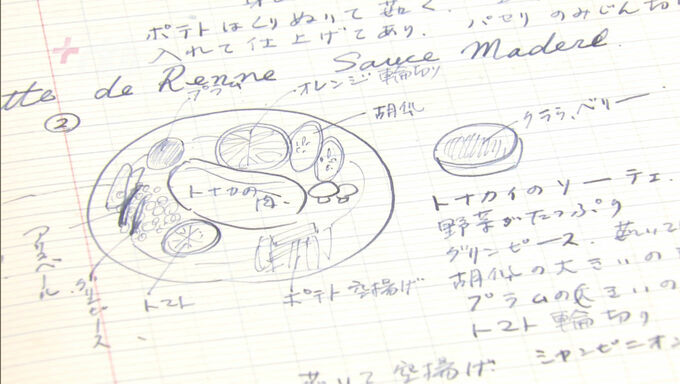 ポテトはくりぬいて茹く.
入れて仕上げてあり. パセリのみじん切
tte de Renne Sauce Madere.
②
プラム
オレンジ輪切り
胡瓜
クララ、ベリー
トナカイの肉.
グリンピース
トマト
ポテト空揚げ
トナカイのソーテェ.
野菜がたっぷり
グリンピース.
胡瓜の大きいの
プラムの大きいの
トマト輪切り
シャンピニオン
空揚げ